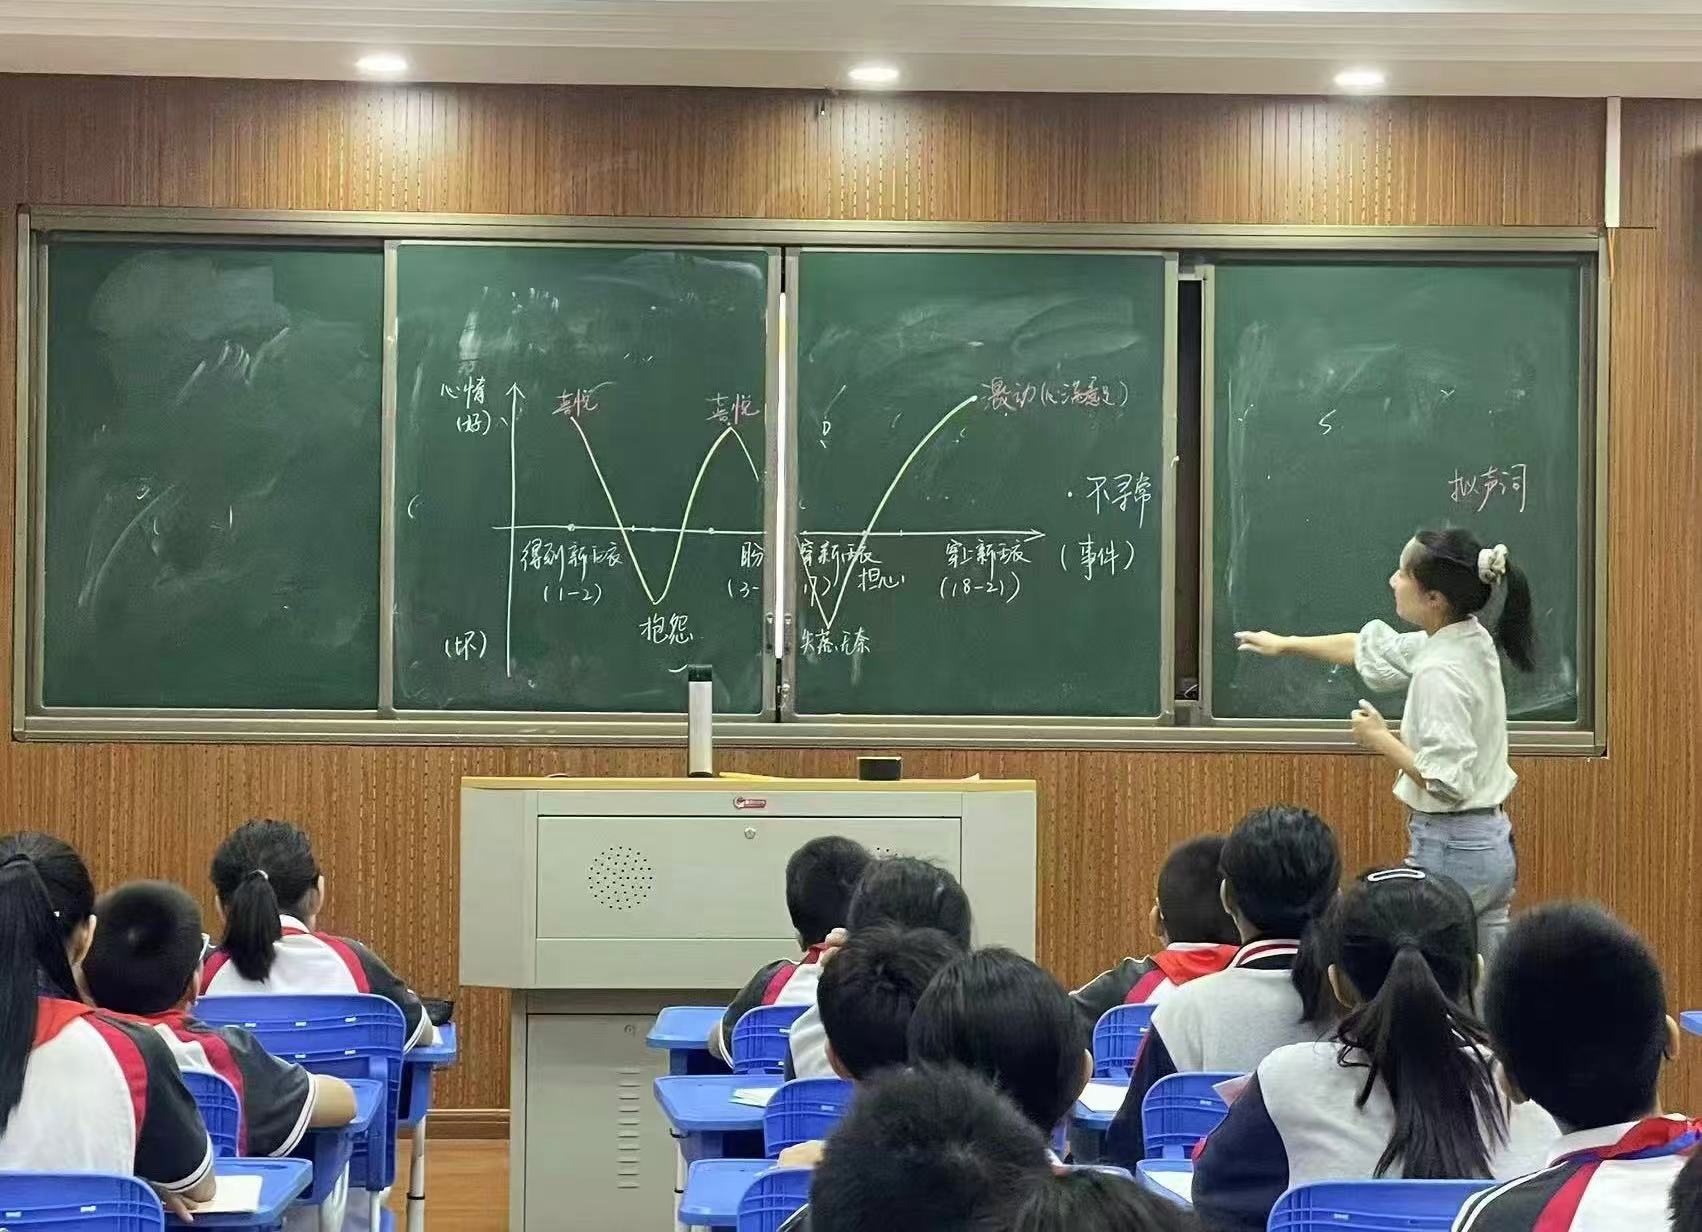 心情
(好)
喜悦
喜悦
激动(心满意足)
·不寻常
拟声词
得到新雨衣
(1-2)
盼
(3-
穿新雨衣
17)
担心
穿上新雨衣
(18-21)
(事件)
抱怨
失落、无奈
(坏)